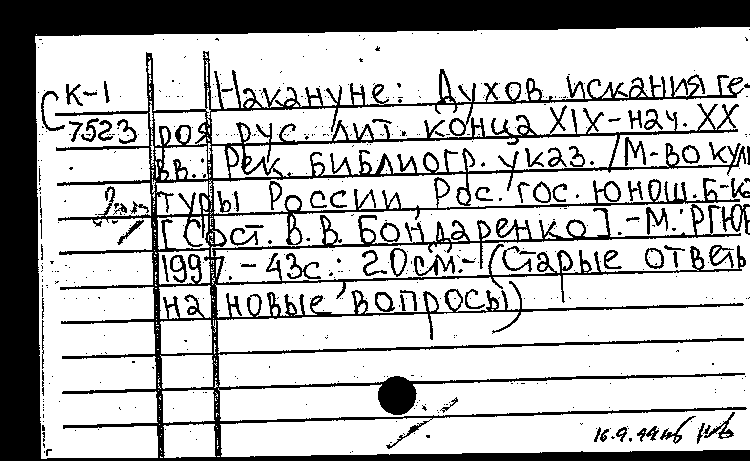 К-1 Накануне: Духов. искания ге-
С 7523 роя рус. лит. конца XIX-нач. XX
вв.: Рек. библиогр. указ. / М-во куль
туры России, Рос. гос. юнош. б-ка
[Сост. В. В. Бондаренко]. - М.: РГЮБ
1997. - 43с.; 20см. - (Старые ответы
на новые вопросы)
16.9.99